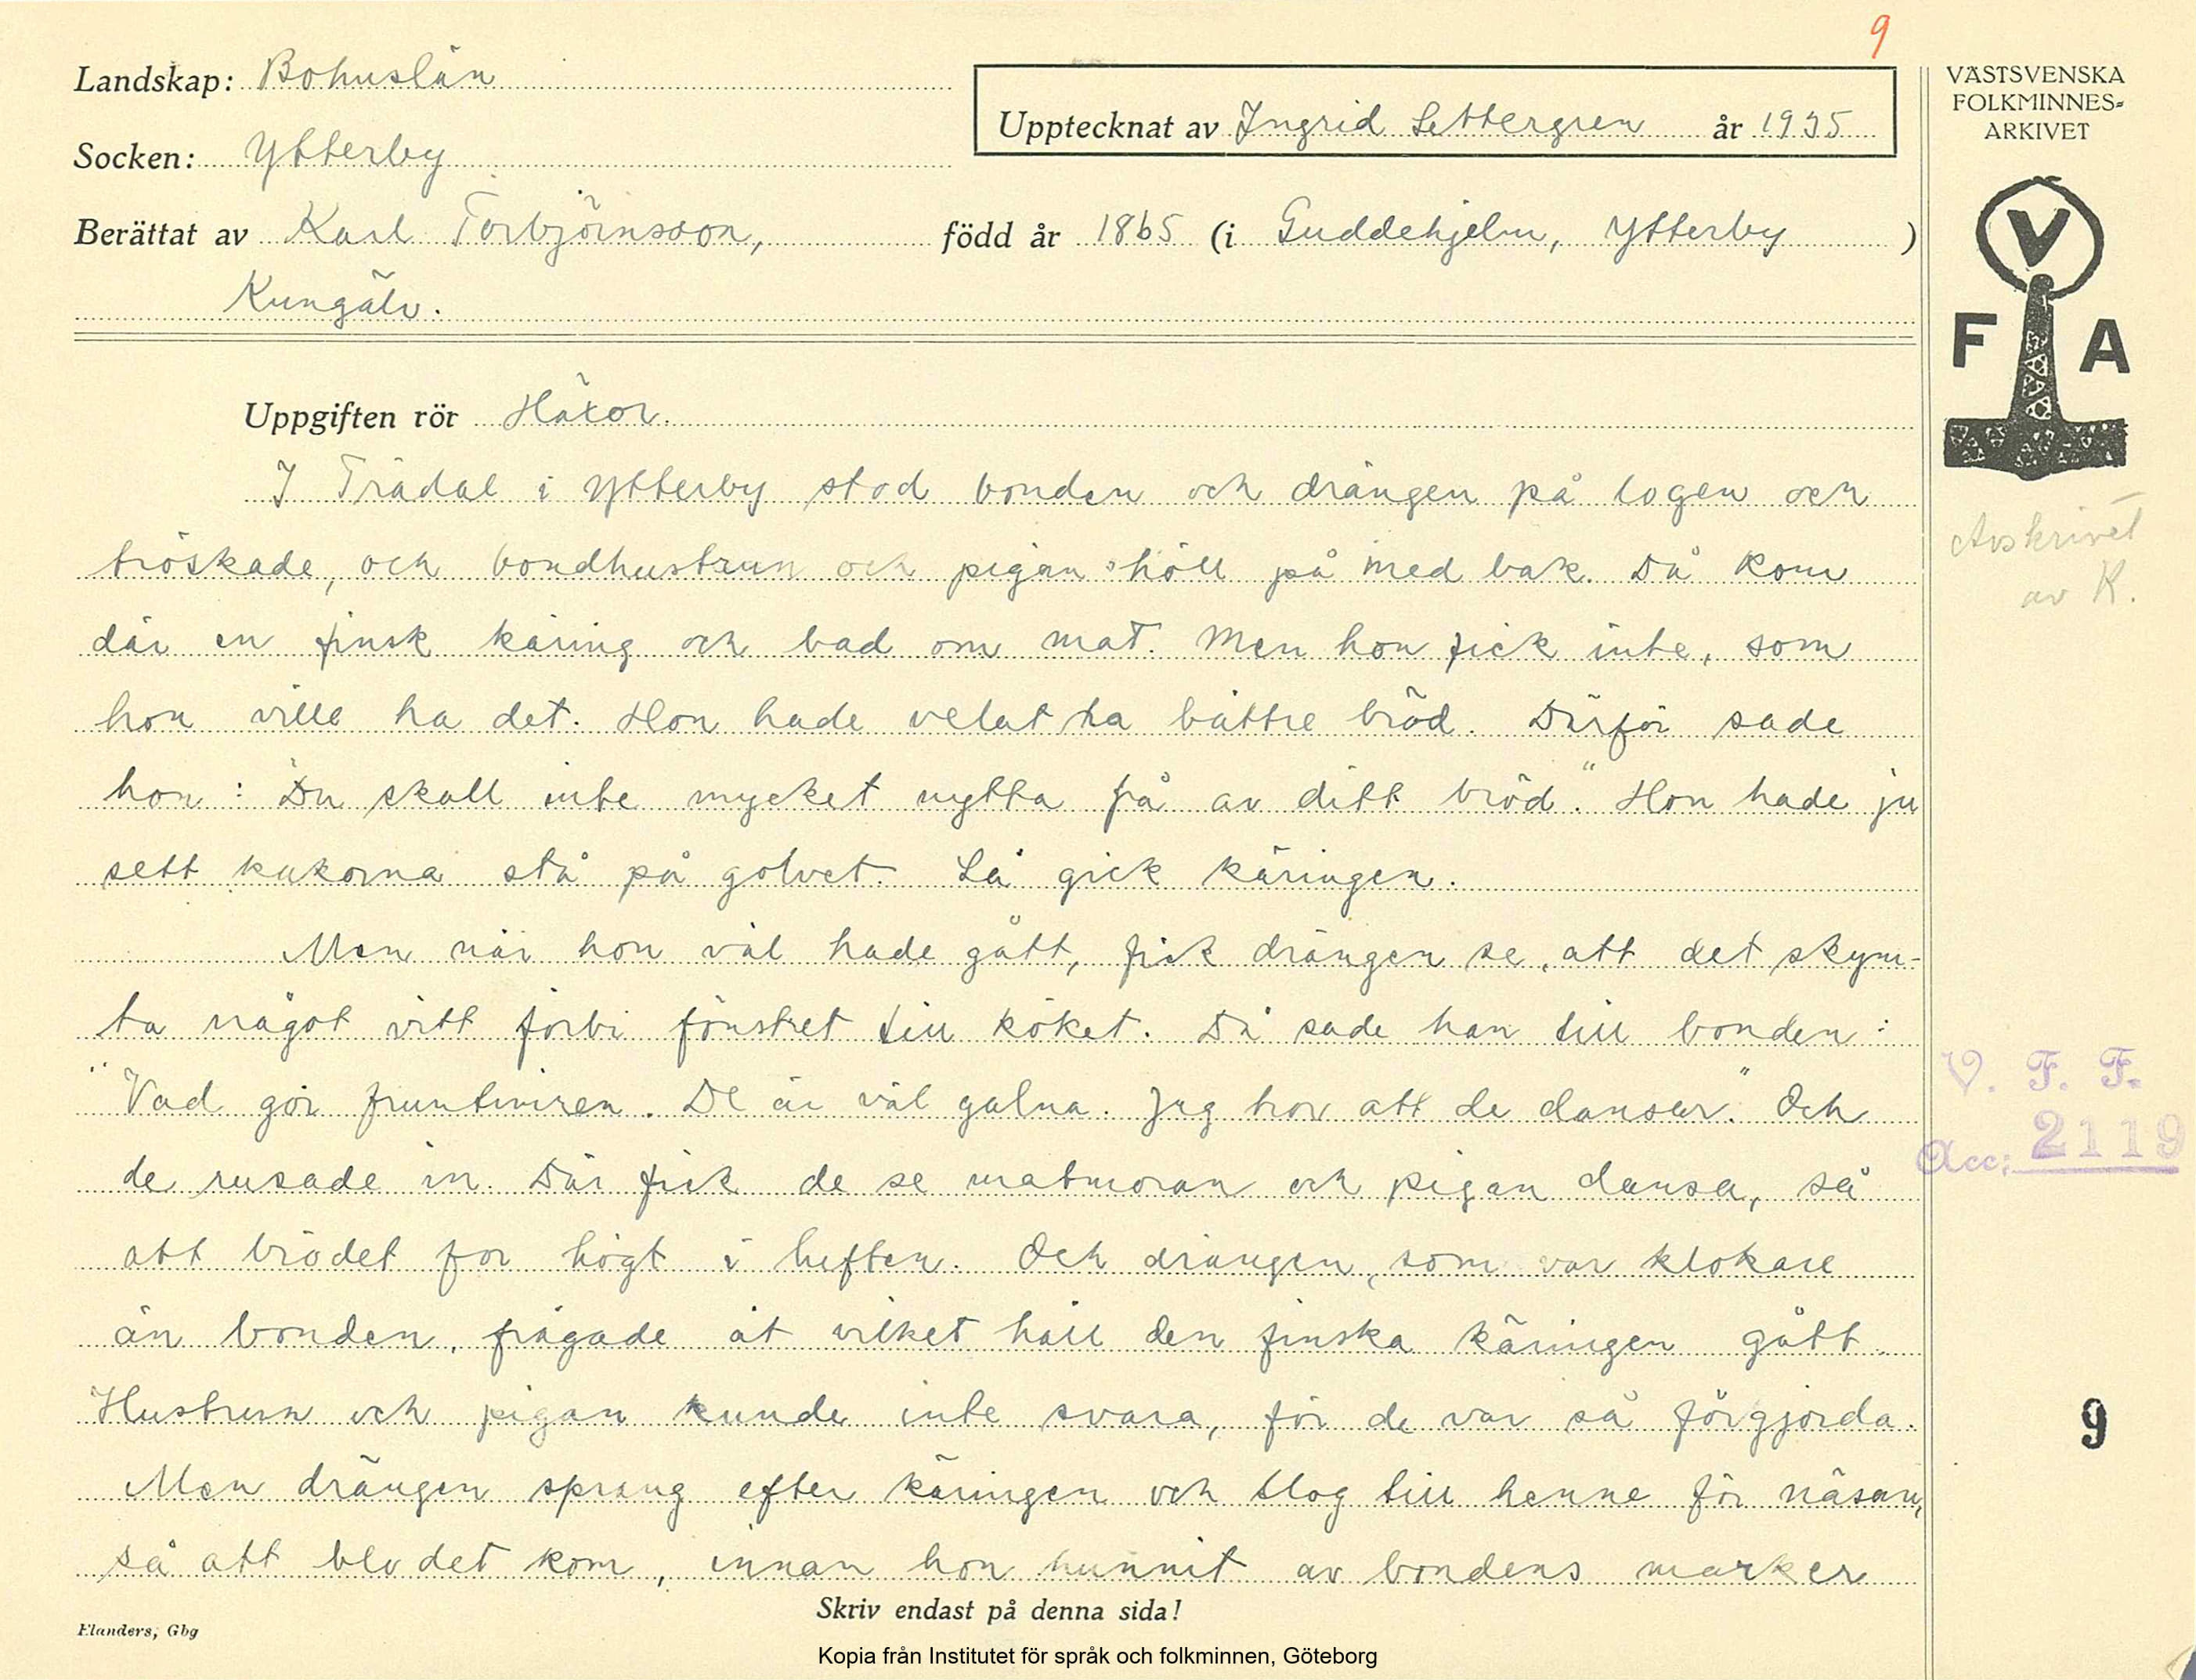 9
Landskap: Bohuslän
Upptecknat av Ingrid Settergren år 1935
Socken: Ytterby
Berättat av Karl Torbjörnsson, född år 1865 (i Guddehjelm, Ytterby )
Kungälv.
VÄSTSVENSKA
FOLKMINNES-
ARKIVET
V
F A
Uppgiften rör Häxor.
I Trädal i Ytterby stod bonden och drängen på logen och
tröskade, och bondhustrun och pigan höll på med bak. Då kom
där en finsk käring och bad om mat. Men hon fick inte, som
hon ville ha det. Hon hade velat ha bättre bröd. Därför sade
hon: "Du skall inte mycket nytta få av ditt bröd." Hon hade ju
sett kakorna stå på golvet. Så gick käringen.
Men när hon väl hade gått, fick drängen se, att det skym-
ta något vitt förbi fönstret till köket. Då sade han till bonden:
"Vad gör fruntimren. De är väl galna. Jag tror att de dansar." Och
de rusade in. Där fick de se matmoran och pigan dansa, så
att brödet for högt i luften. Och drängen, som var klokare
än bonden, frågade åt vilket håll den finska käringen gått.
Hustrun och pigan kunde inte svara, för de var så förgjorda.
Men drängen sprang efter käringen och slog till henne för näsan,
så att blodet kom, innan hon hunnit av bondens marker
Avskrivet
av K.
V. F. F.
Acc: 2119
9
Skriv endast på denna sida!
Elanders, Gbg
Kopia från Institutet för språk och folkminnen, Göteborg